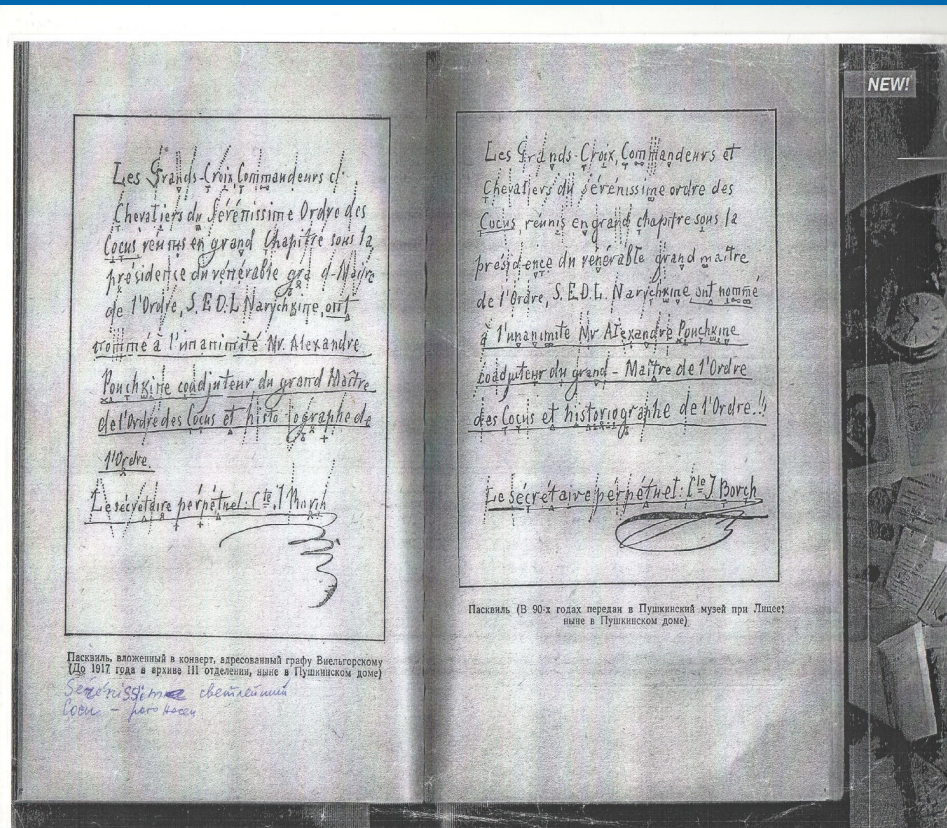 NEW!
Les Grands-Croix, Commandeurs et
Chevaliers du Sérénissime Ordre des
Cocus réunis en grand Chapitre sous la
présidence du vénérable grand-Maître
de l'Ordre, S.E.D.L. Narychkine, ont
nommé à l'unanimité Mr. Alexandre
Pouchkine coadjuteur du grand Maître
de l'Ordre des Cocus et historiographe de
l'Ordre.
Le sécrétaire perpétuel: Cte. J Borch
Пасквиль, вложенный в конверт, адресованный графу Виельгорскому
(До 1917 года в архиве III отделения, ныне в Пушкинском доме)
Serenissime светлейший
Cocu - рогоносец
Les Grands-Croix, Commandeurs et
Chevaliers du sérénissime ordre des
Cocus, réunis en grand chapitre sous la
présidence du vénérable grand maître
de l'Ordre, S.E.D.L. Narychkine ont nommé
à l'unanimité Mr Alexandre Pouchkine
coadjuteur du grand-Maître de l'Ordre
des Cocus et historiographe de l'Ordre.!!
Le sécrétaire perpétuel: Cte J Borch
Пасквиль (В 90-х годах передан в Пушкинский музей при Лицее;
ныне в Пушкинском доме)